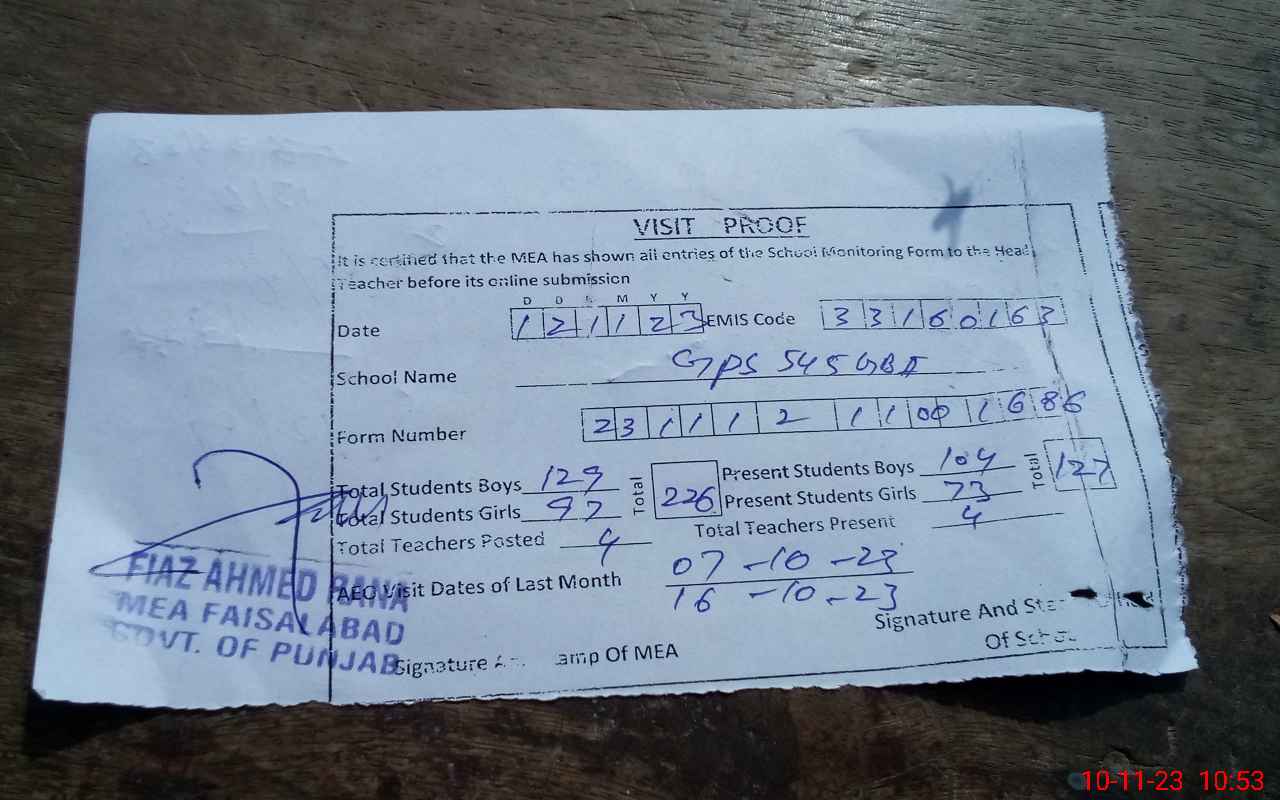 VISIT PROOF
It is certified that the MEA has shown all entries of the School Monitoring Form to the Head
Teacher before its online submission
D D M Y Y
Date 1 2 1 1 2 3 EMIS Code 3 3 1 6 0 1 6 3
School Name GPS 545 GB
Form Number 2 3 1 1 1 2 1 1 0 0 1 6 8 6
Total Students Boys 129 Total 226 Present Students Boys 104 Total 127
Total Students Girls 97 Present Students Girls 73
Total Teachers Posted 4 Total Teachers Present 4
AEO Visit Dates of Last Month 07-10-23
16-10-23
FIAZ AHMED RANA
MEA FAISALABAD
GOVT. OF PUNJAB
Signature And
Of
Signature Of MEA
10-11-23 10:53